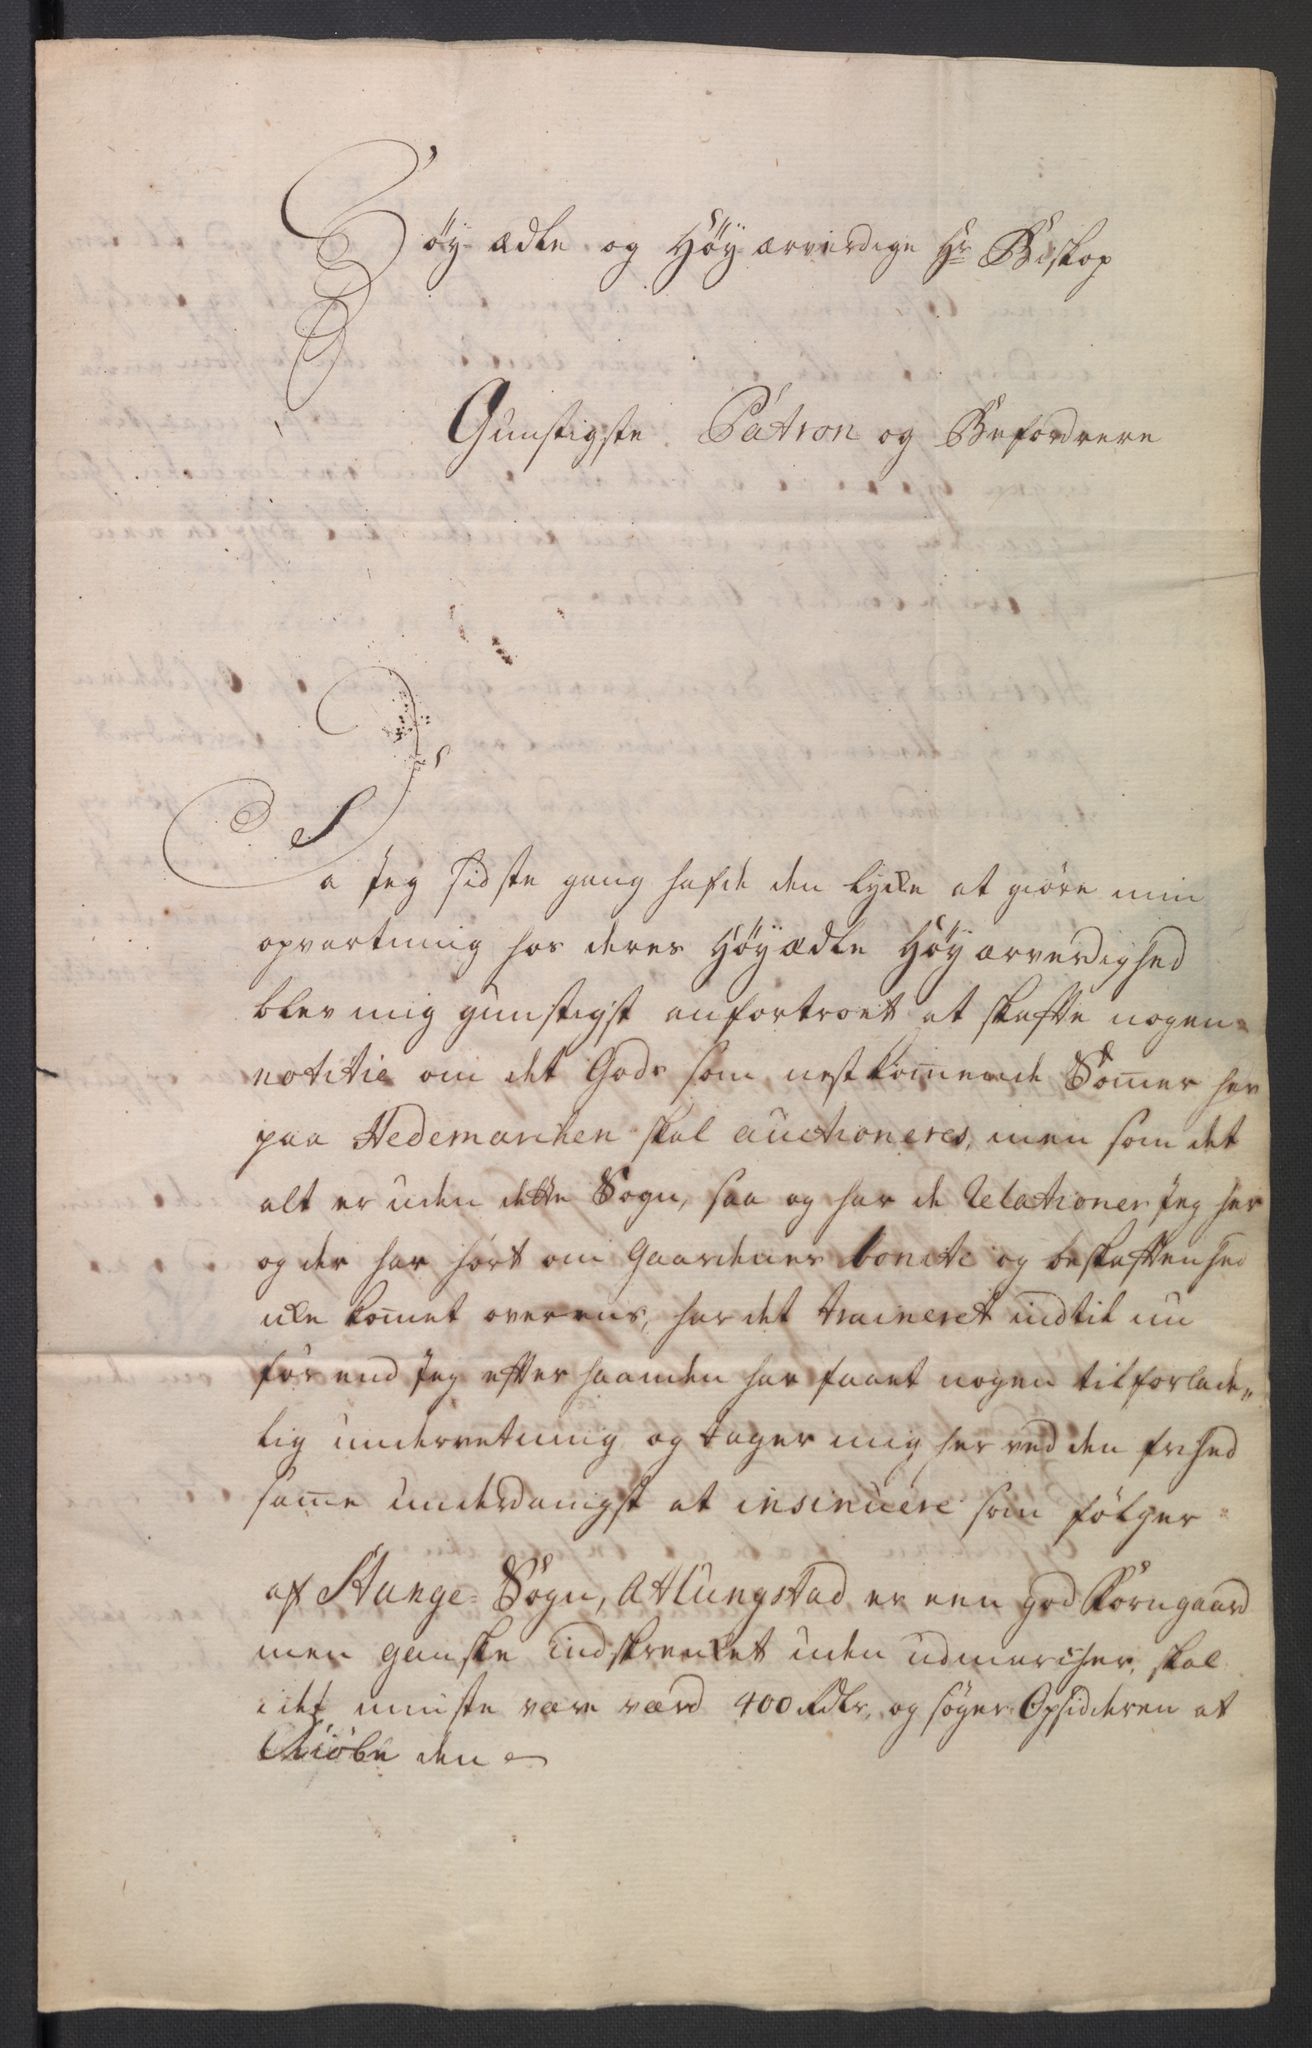 Høy-ædle og Høy ærverdige Hr Biskop
Gunstigste Patron og Befordrere
Da Jeg sidste gang hafde den lycke at giöre min
opvartning hos deres Høyædle Høyærverdighed
blev mig gunstigst anfortroet at skaffe nogen
notitie om det Gods som nestkom̅ende Som̅er her
paa Hedemarchen skal auctioneres, men som det
alt er uden dette Sogn, saa og har de Relationer Jeg her
og der har hört om Gaardenes bonité og beskaffenhed
icke kom̅et overens, har det traineret indtil nu
för end Jeg efter haanden har faaet nogen tilforlade„
lig underretning og tager mig her ved den frihed
sam̅e underdanigst at insinuere som fölger
af Stange Sogn, Atlungstad er een god Korngaard
men ganske indskrencket uden udmarcher, skal
i det minste være værd 400 Rdlr, og söger Opsidderen at
Kiöbe den